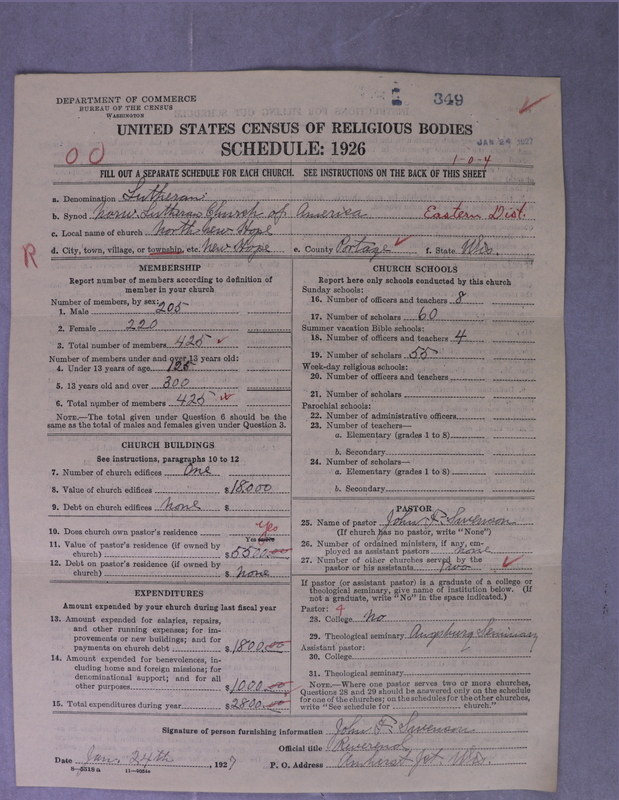 DEPARTMENT OF COMMERCE
BUREAU OF THE CENSUS
WASHINGTON
349
UNITED STATES CENSUS OF RELIGIOUS BODIES
JAN 24 1927
SCHEDULE: 1926
00
1-0-4
FILL OUT A SEPARATE SCHEDULE FOR EACH CHURCH. SEE INSTRUCTIONS ON THE BACK OF THIS SHEET
a. Denomination Lutheran
b. Synod Norw. Lutheran Church of America Eastern Dist.
c. Local name of church North New Hope
R d. City, town, village, or township, etc. New Hope e. County Portage f. State Wis.
MEMBERSHIP
Report number of members according to definition of
member in your church
Number of members, by sex:
1. Male 205
2. Female 220
3. Total number of members 425
Number of members under and over 13 years old:
4. Under 13 years of age 125
5. 13 years old and over 300
6. Total number of members 425
NOTE.—The total given under Question 6 should be the
same as the total of males and females given under Question 3.
CHURCH BUILDINGS
See instructions, paragraphs 10 to 12
7. Number of church edifices One
8. Value of church edifices $18000
9. Debt on church edifices None $
10. Does church own pastor's residence Yes
Yes
11. Value of pastor's residence (if owned by
church) $5500.00
12. Debt on pastor's residence (if owned by
church) $ None
EXPENDITURES
Amount expended by your church during last fiscal year
13. Amount expended for salaries, repairs,
and other running expenses; for im-
provements or new buildings; and for
payments on church debt $1800.00
14. Amount expended for benevolences, in-
cluding home and foreign missions; for
denominational support; and for all
other purposes $1000.00
15. Total expenditures during year $2800.00
CHURCH SCHOOLS
Report here only schools conducted by this church
Sunday schools:
16. Number of officers and teachers 8
17. Number of scholars 60
Summer vacation Bible schools:
18. Number of officers and teachers 4
19. Number of scholars 55
Week-day religious schools:
20. Number of officers and teachers
21. Number of scholars
Parochial schools:
22. Number of administrative officers
23. Number of teachers—
a. Elementary (grades 1 to 8)
b. Secondary
24. Number of scholars—
a. Elementary (grades 1 to 8)
b. Secondary
PASTOR
25. Name of pastor John F. Swenson
(If church has no pastor, write "None")
26. Number of ordained ministers, if any, em-
ployed as assistant pastors none
27. Number of other churches served by the
pastor or his assistants two
If pastor (or assistant pastor) is a graduate of a college or
theological seminary, give name of institution below. (If
not a graduate, write "No" in the space indicated.)
Pastor: 4
28. College No
29. Theological seminary Augsburg Seminary
Assistant pastor:
30. College
31. Theological seminary
NOTE.—Where one pastor serves two or more churches,
Questions 28 and 29 should be answered only on the schedule
for one of the churches; on the schedules for the other churches,
write "See schedule for church."
Signature of person furnishing information John F. Swenson
Official title Reverend
Date Jan. 24th, 1927 P. O. Address Amherst Jct Wis.
8—5518a 11—9554